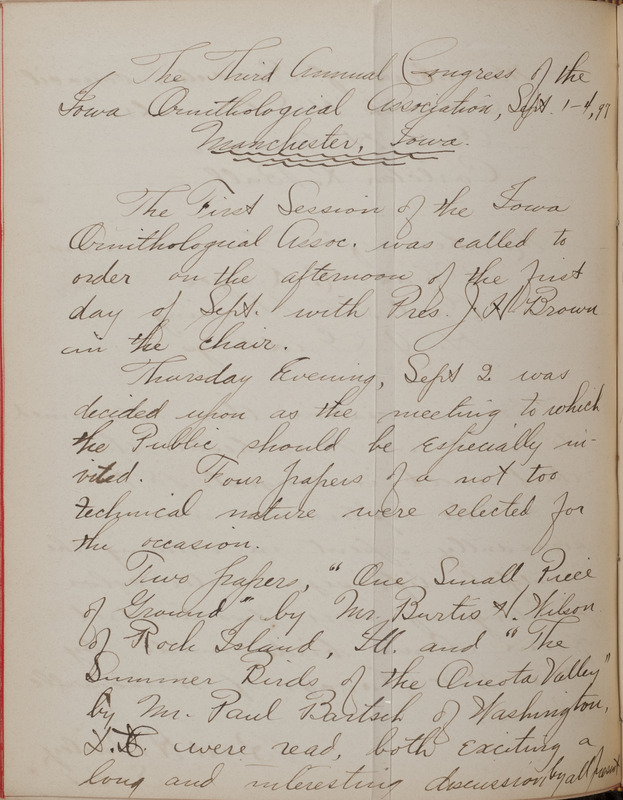 The Third Annual Congress of the
Iowa Ornithological Association, Sept. 1-4, 97
Manchester, Iowa.
The First Session of the Iowa
Ornithological Assoc. was called to
order on the afternoon of the first
day of Sept. with Pres. J H Brown
in the chair.
Thursday Evening, Sept 2 was
decided upon as the meeting to which
the Public should be especially in-
vited. Four papers of a not too
technical nature were selected for
the occasion.
Two papers, "One Small Piece
of Ground" by Mr. Burtis H. Wilson
of Rock Island, Ill. and "The
Summer Birds of the Oneota Valley"
by Mr. Paul Bartsch of Washington,
D.C. were read, both exciting a
long and interesting discussion by all present